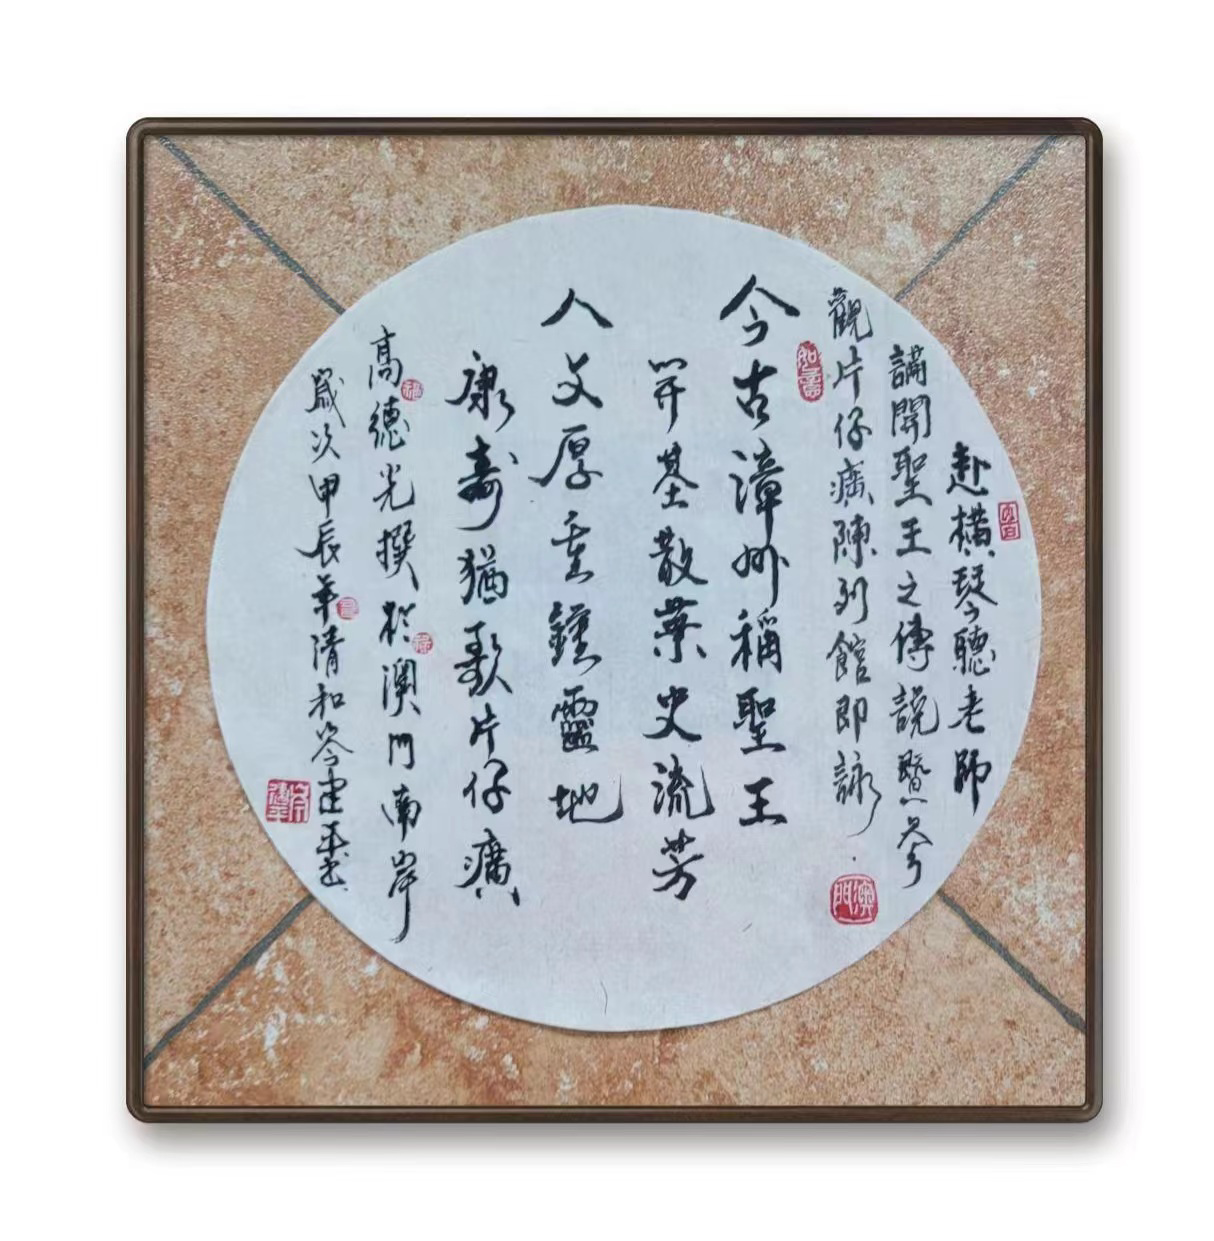 赴橫琴聽老師
講開聖王之傳說暨參
觀片仔癀陳列館即詠
今古漳州稱聖王
開基散葉史流芳
人文厚重鍾靈地
康壽猶歌片仔癀
高德光撰於澳門南岸
歲次甲辰年清和岑建平書
如意
澳門
福
祿